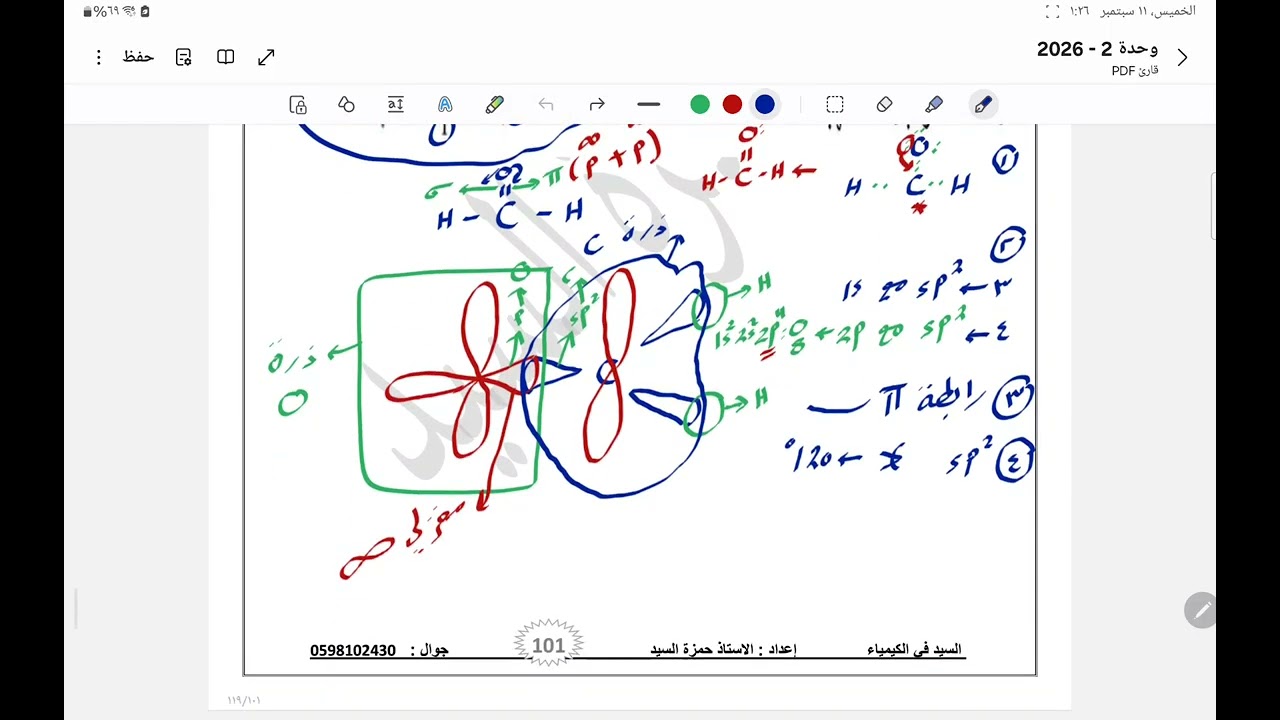 الخميس، ١١ سبتمبر ١:٢٦
٦٩%
وحدة 2 - 2026
قارئ PDF
حفظ
①
①
(P + P)
σ ← → π
O
H - C - H
O
H - C - H ←
O
H .. C .. H
*
ذرة C
②
٣ ← sp² 1s
٤ ← sp² 2p ← ₈O: 1s² 2s² 2p⁴
③ رابطة π
④ sp² ← 120°
O
C
P
sp²
→ H
→ H
C
ذرة
O
السيد في الكيمياء
إعداد : الاستاذ حمزة السيد
101
جوال : 0598102430
١١٩/١٠١